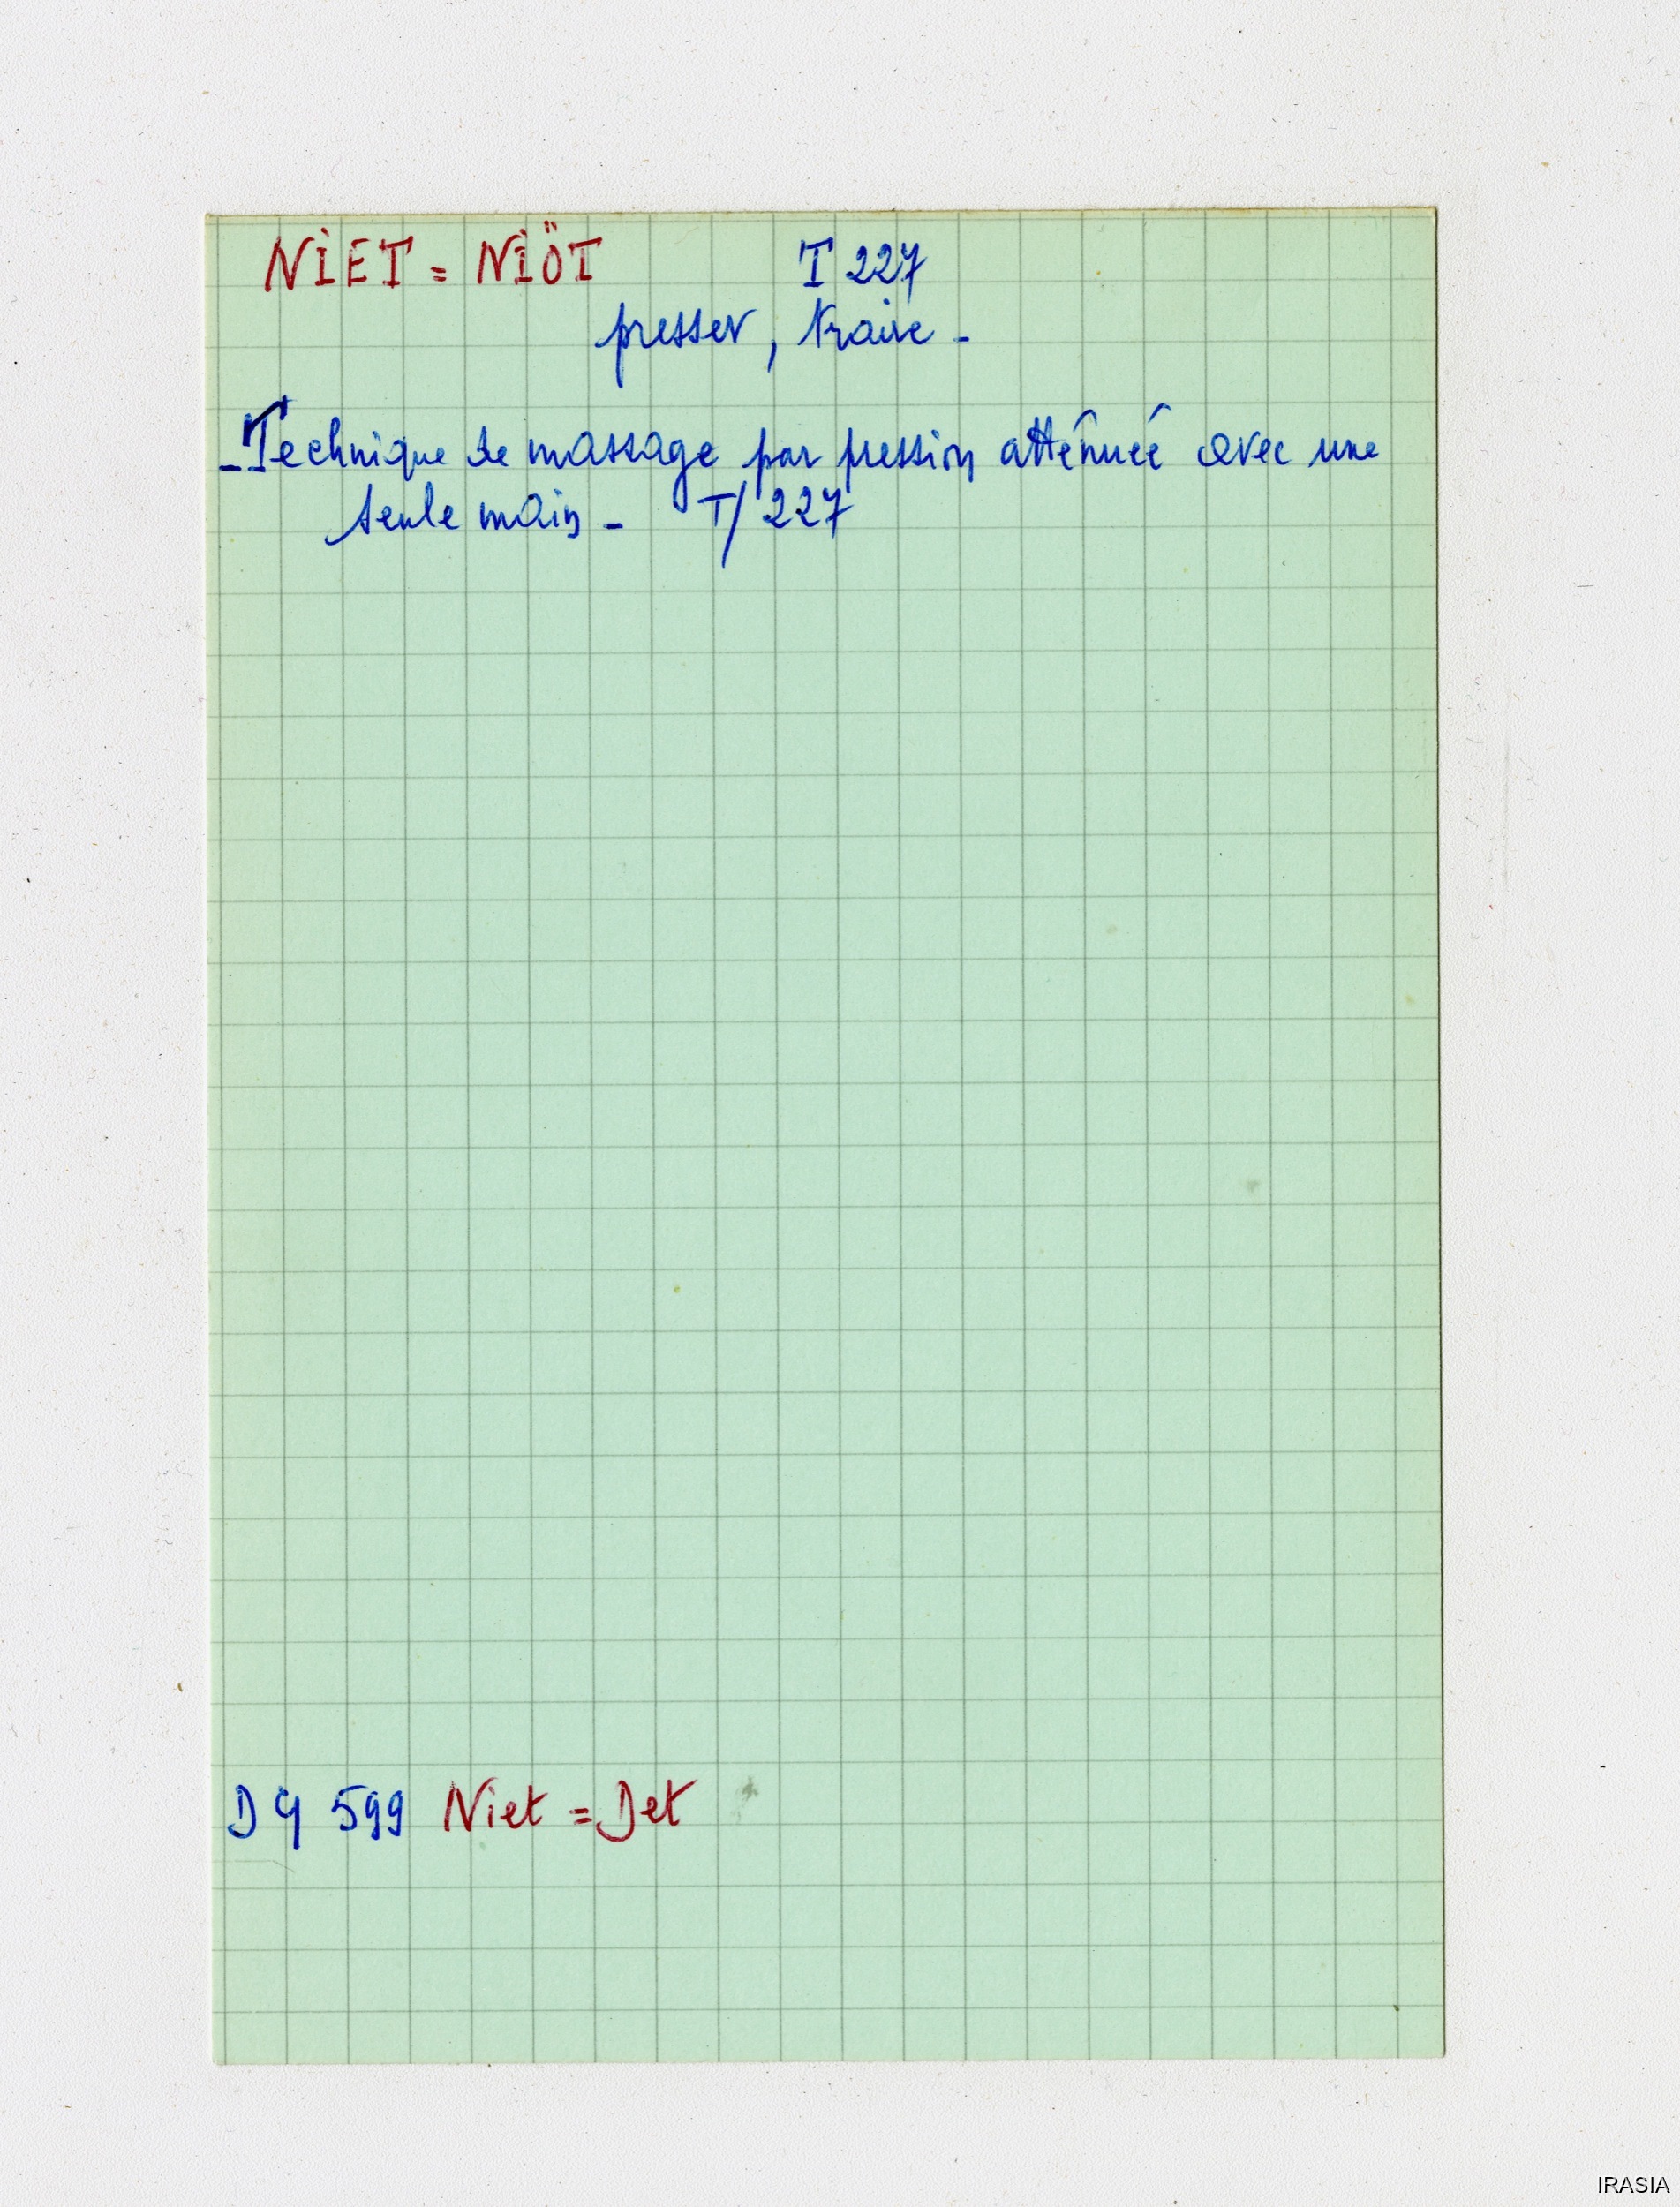 NIET = NIÖT T 227
presser, traire -
- Technique de massage par pression atténuée avec une
seule main - T/227
DG 599 Niet = Det
IRASIA